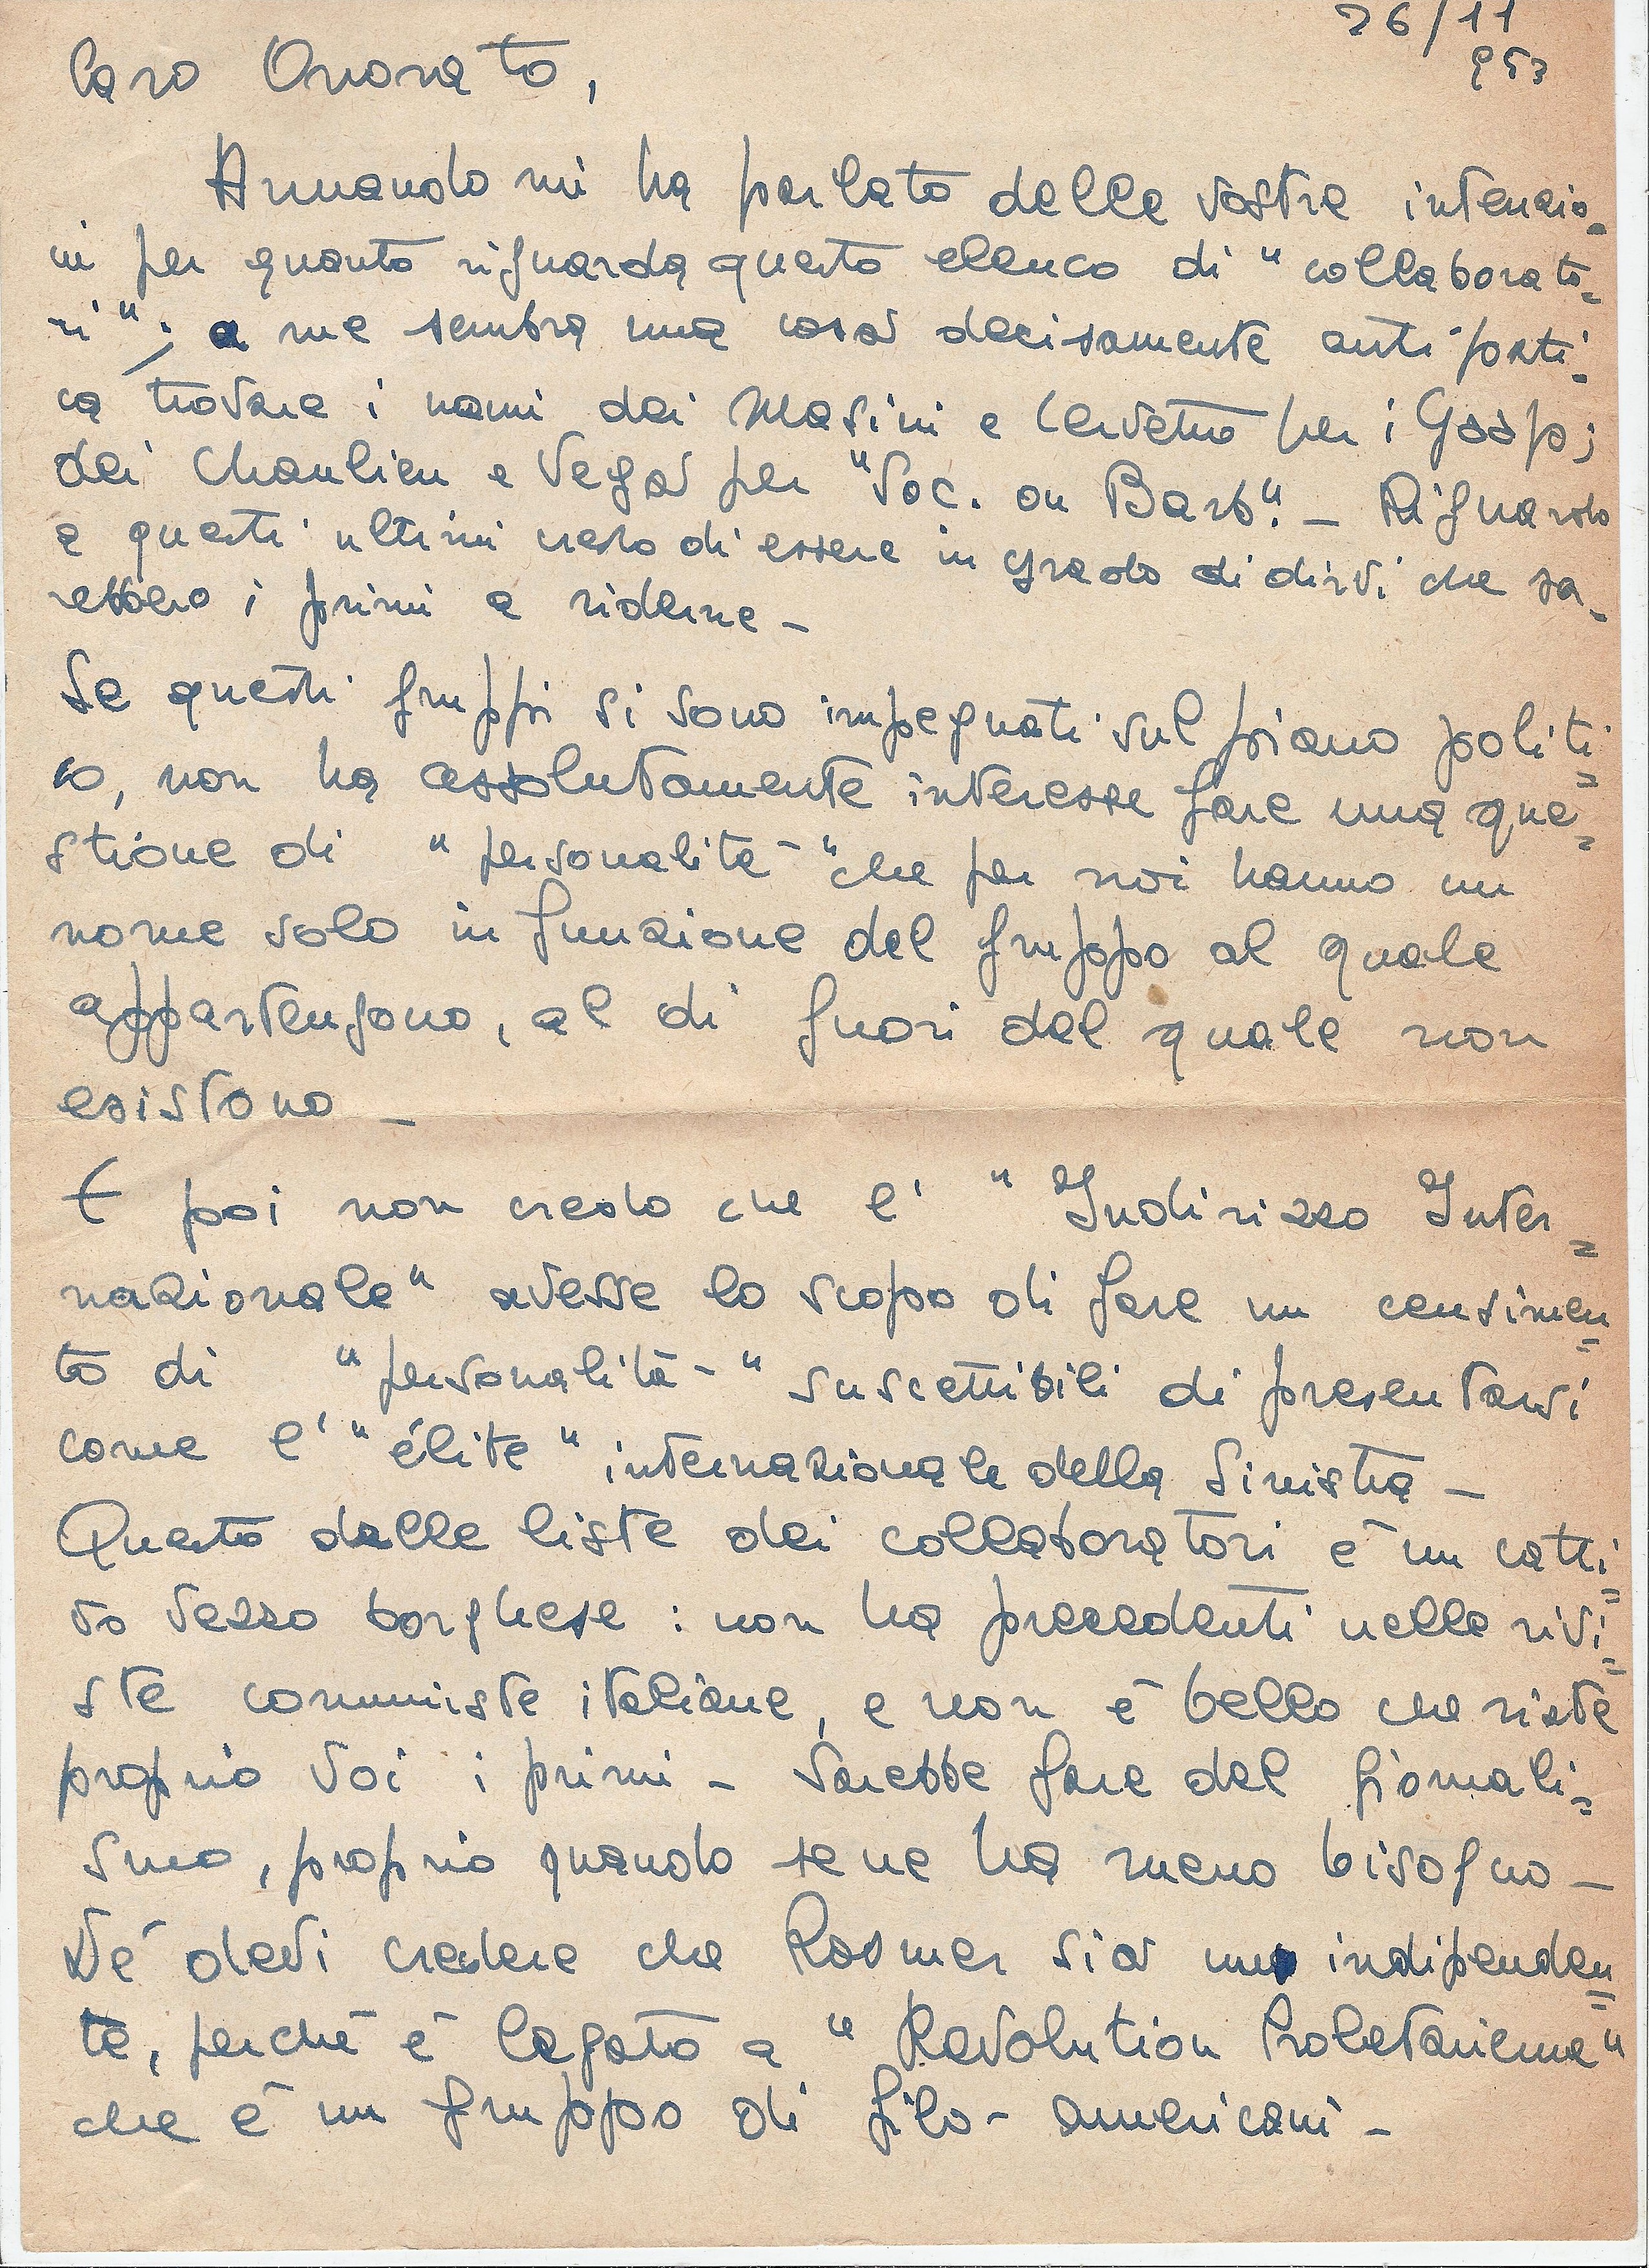 26/11
953
Caro Onorato,
Armando mi ha parlato delle vostre intenzio-
ni per quanto riguarda questo elenco di "collaborato=
ri"; a me sembra una cosa decisamente antipati-
ca trovare i nomi dei Masini e Cervetto per i Gaap;
dei Chaulieu e Vega per "Soc. ou Barb". - Riguardo
a questi ultimi credo di essere in grado di dirvi che sa-
rebbero i primi a riderne -
Se questi gruppi si sono impegnati sul piano politi=
co, non ha assolutamente interesse fare una que=
stione di "personalità" che per noi hanno un
nome solo in funzione del gruppo al quale
appartengono, al di fuori del quale non
esistono -
E poi non credo che l'"Indirizzo Inter=
nazionale" avesse lo scopo di fare un censimen=
to di "personalità" suscettibili di presentarsi
come l'"élite" internazionale della Sinistra -
Questo delle liste dei collaboratori è un catti=
vo vezzo borghese: non ha precedenti nelle rivi=
ste comuniste italiane, e non è bello che siate
proprio voi i primi - Sarebbe fare del giornali=
smo, proprio quando se ne ha meno bisogno -
Né devi credere che Rosmer sia un indipenden=
te, perché è legato a "Revolution Proletarienne"
che è un gruppo di filo-americani -